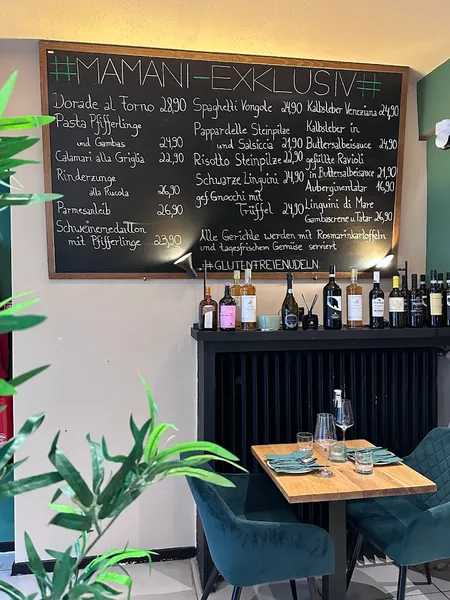 #MAMANI-EXKLUSIV#
Dorade al Forno 28,90
Pasta Pfifferlinge
und Gambas 24,90
Calamari alla Griglia 22,90
Rinderzunge
alla Rucola 26,90
Parmesanleib 26,90
Schweinemedaillon
mit Pfifferlinge 23,90
Spaghetti Vongole 24,90
Pappardelle Steinpilze
und Salsiccia 21,90
Risotto Steinpilze 22,90
Schwarze Linguini 24,90
gef. Gnocchi mit
Trüffel 24,90
Kalbsleber Veneziana 24,90
Kalbsleber in
Buttersalbeisauce 24,90
gefüllte Ravioli
in Buttersalbeisauce 21,90
Auberginentatar 16,90
Linguini di Mare
Gambascreme u. Tatar 26,90
Alle Gerichte werden mit Rosmarinkartoffeln
und tagesfrischen Gemüse serviert
#GLUTENFREIENUDELN